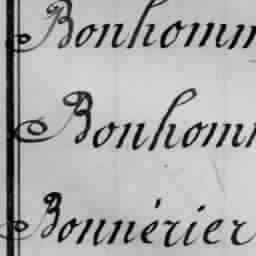 Bonhomm
Bonhomm
Bonnérier